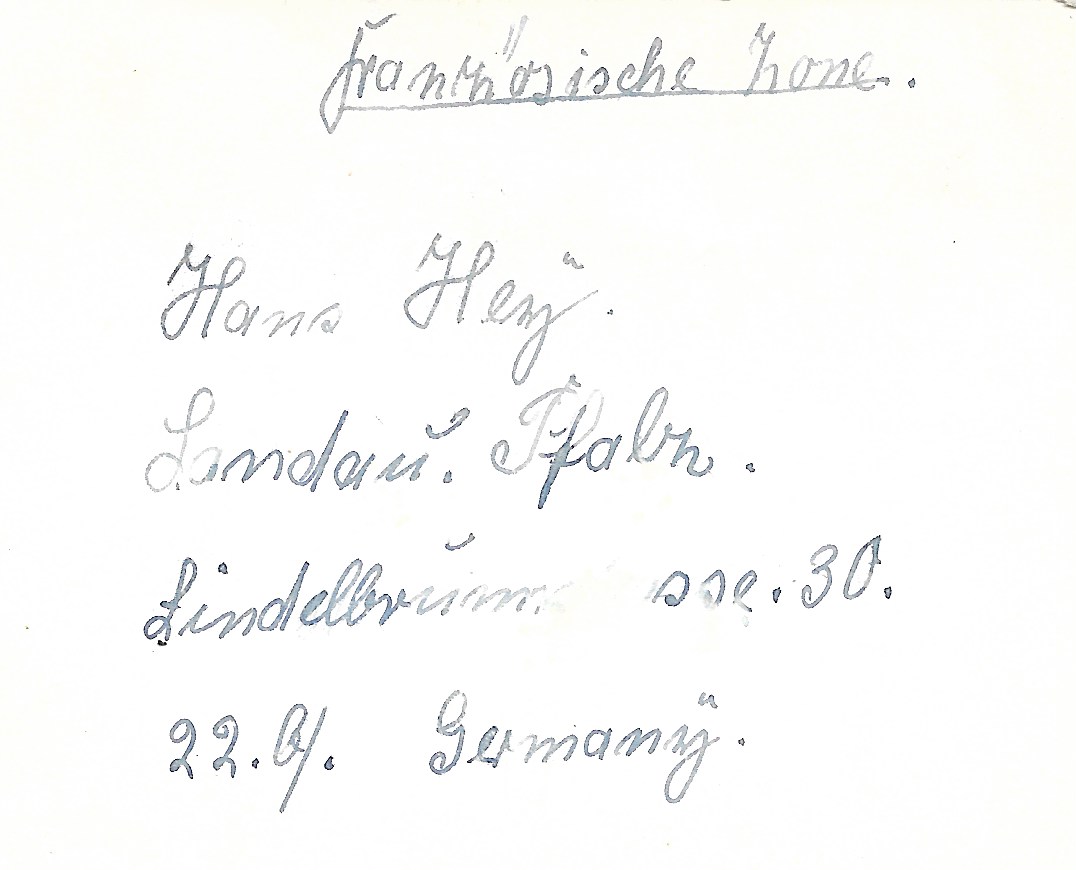 Französische Zone.
Hans Heÿ.
Landau. Pfalz.
Lindelbrunn sse. 30.
22.b/. Germanÿ.